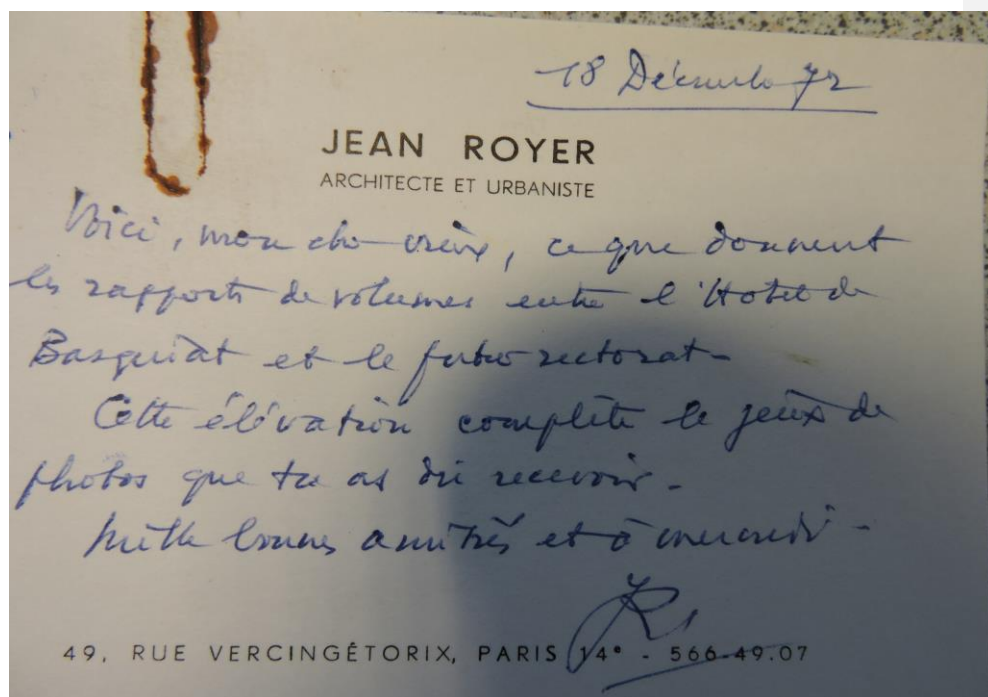 18 Décembre 72
JEAN ROYER
ARCHITECTE ET URBANISTE
Voici, mon cher vieux, ce que donnent
les rapports de volumes entre l'Hotel de
Basquiat et le futur rectorat -
Cette élévation complète le jeux de
photos que tu as dû recevoir -
Mille bonnes amitiés et à mercredi -
JR
49, RUE VERCINGÉTORIX, PARIS 14° - 566-49.07